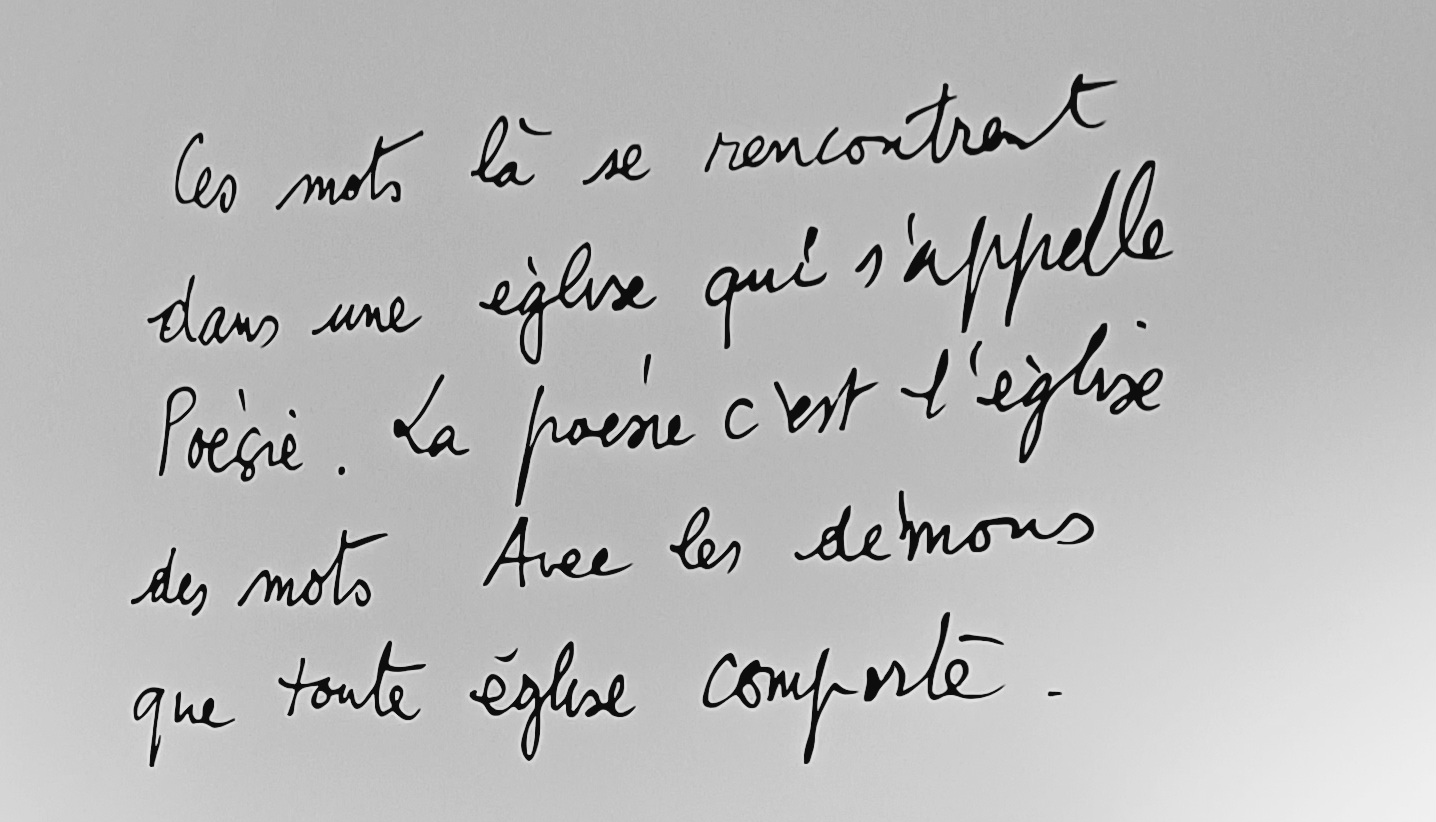 Ces mots là se rencontrent
dans une église qui s'appelle
Poésie. La poésie c'est l'église
des mots Avec les démons
que toute église comporte.